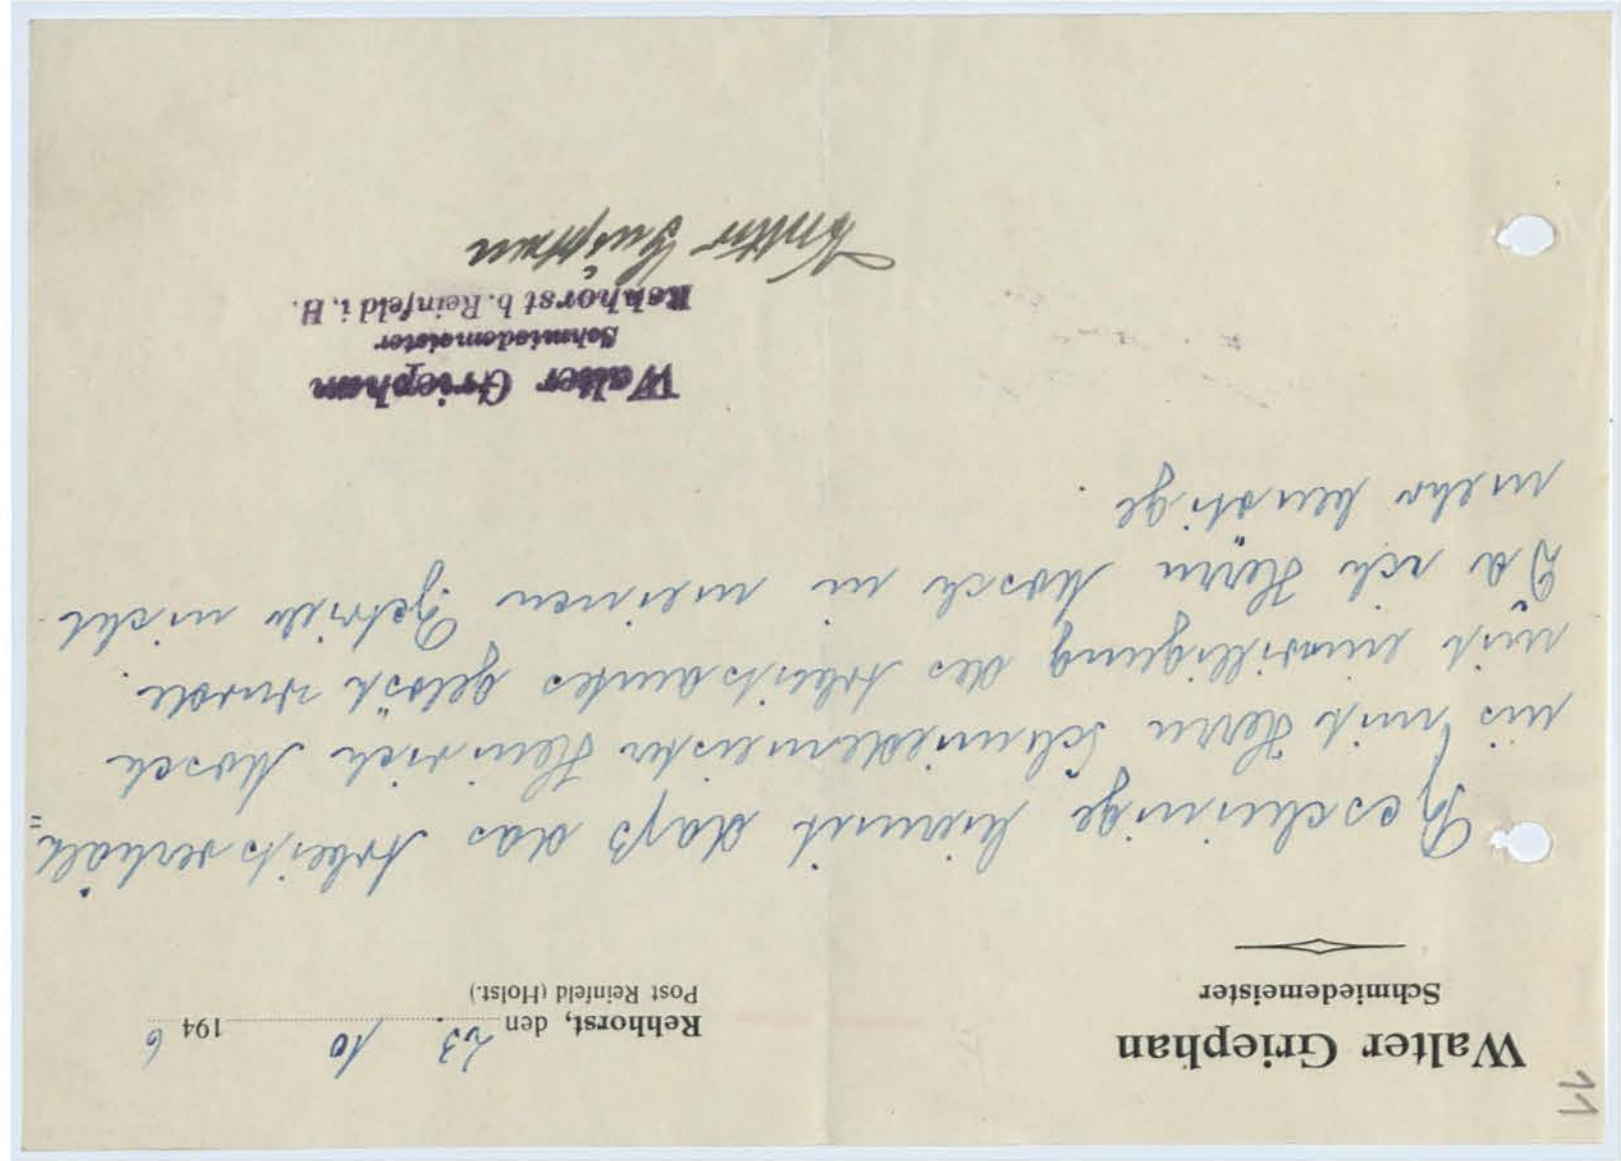 11
Walter Griephan
Schmiedemeister
Rehhorst, den 23. 10 1946
Post Reinfeld (Holst.)
Bescheinige hiermit daß das Arbeitsverhält=
nis mit Herrn Schmiedemeister Heinrich Mosch
mit einwilligung des Arbeitsamtes gelöst wurde.
Da ich Herrn Mosch in meinen Betrieb nicht
mehr benötige.
Walter Griephan
Schmiedemeister
Rehhorst b. Reinfeld i. H.
Walter Griephan